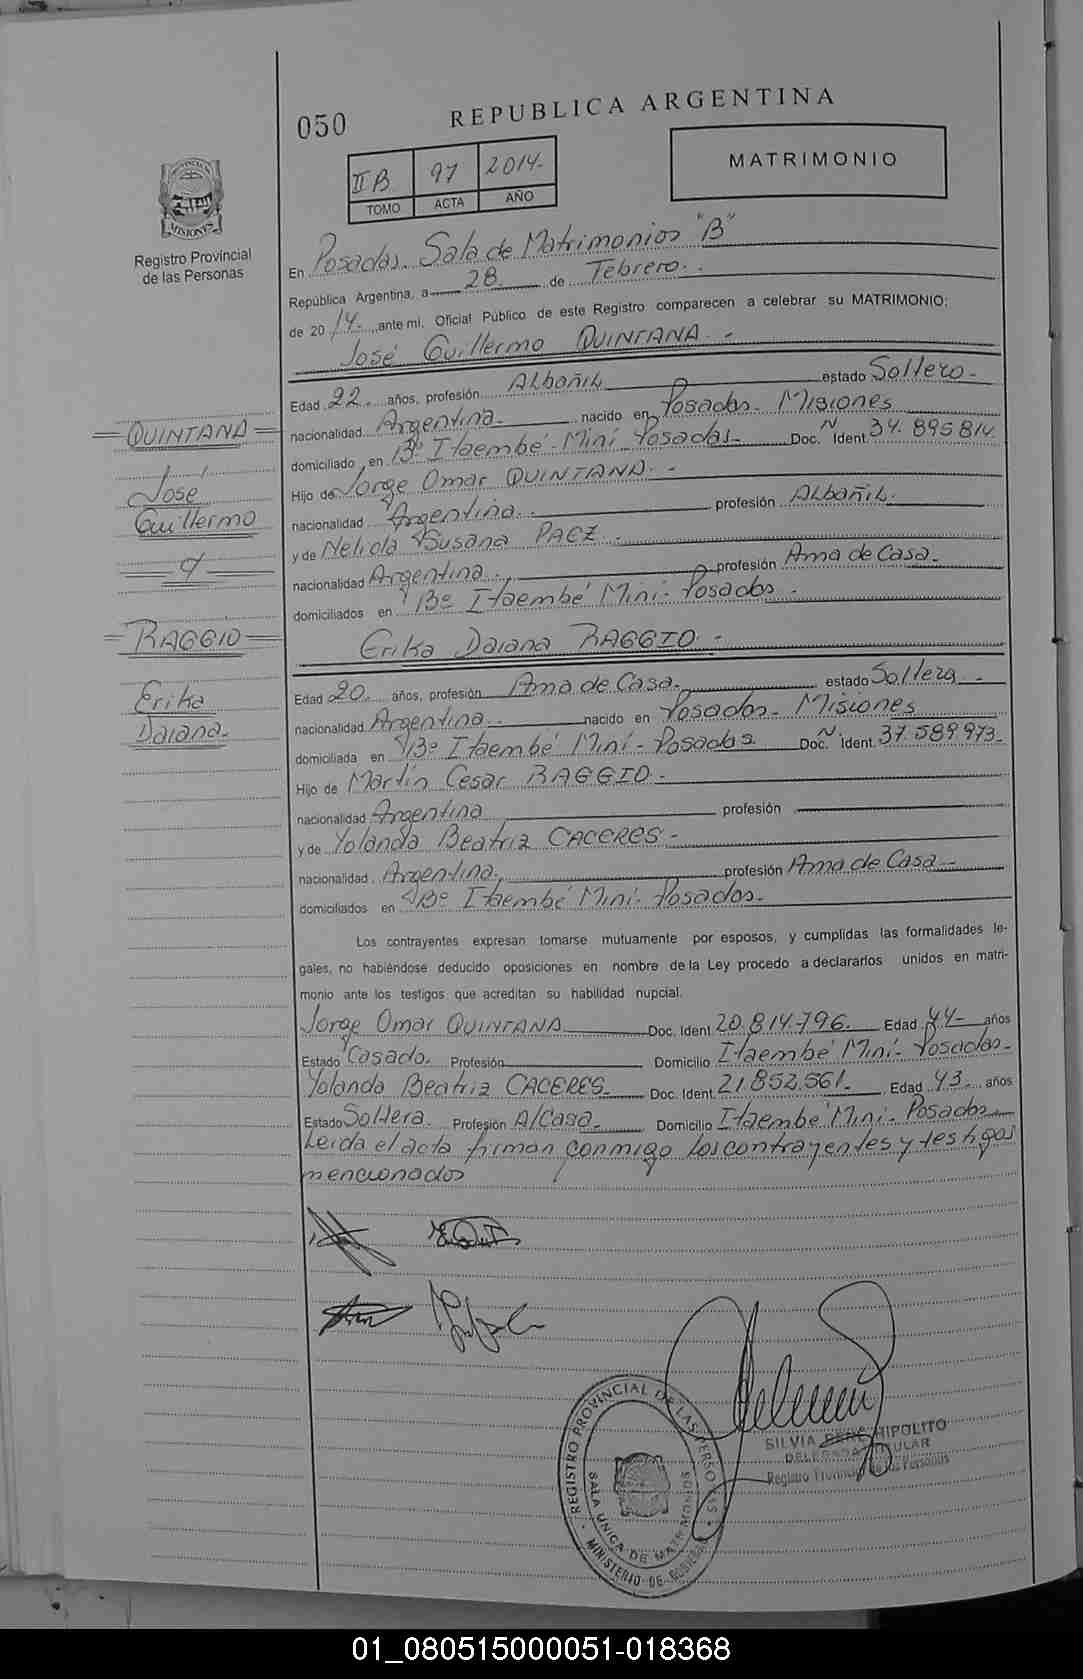 050
REPUBLICA ARGENTINA
II B 97 2014.-
TOMO ACTA AÑO
MATRIMONIO
PROVINCIA
MISIONES
Registro Provincial
de las Personas
En Posadas. Sala de Matrimonios "B"
República Argentina, a 28 de Febrero.-
de 20 14. ante mí, Oficial Público de este Registro comparecen a celebrar su MATRIMONIO:
José Guillermo QUINTANA.-
Edad 22. años, profesión Albañil estado Soltero.-
= QUINTANA =
nacionalidad Argentina. nacido en Posadas- Misiones
domiciliado en Bº Itaembé Miní Posadas- Doc. N Ident 34.895814.
José
Hijo de Jorge Omar QUINTANA.-
Guillermo
nacionalidad Argentina. profesión Albañil.
y de Susana PAEZ.
= y =
nacionalidad Argentina. profesión Ama de Casa.
domiciliados en Bº Itaembé Miní- Posadas
= RAGGIO =
Erika Daiana RAGGIO.-
Edad 20. años, profesión Ama de Casa. estado Soltera -
Erika
nacionalidad Argentina. nacido en Posadas- Misiones
Daiana.
domiciliada en Bº Itaembé Miní- Posadas Doc. N Ident. 37.589973.
Hijo de Martín Cesar RAGGIO.
nacionalidad Argentina profesión
y de Yolanda Beatriz CACERES.-
nacionalidad. Argentina. profesión Ama de Casa-
domiciliados en Bº Itaembé Miní- Posadas.
Los contrayentes expresan tomarse mutuamente por esposos, y cumplidas las formalidades le-
gales, no habiéndose deducido oposiciones en nombre de la Ley procedo a declararlos unidos en matri-
monio ante los testigos que acreditan su habilidad nupcial.
Jorge Omar QUINTANA Doc. Ident 20.814.796. Edad 44- años
Estado Casado. Profesión Domicilio Itaembé Miní- Posadas-
Yolanda Beatriz CACERES. Doc. Ident. 21.852.561. Edad 43 años
Estado Soltera. Profesión A/Casa. Domicilio Itaembé Miní- Posadas
Leida el acta firman conmigo los contrayentes y testigos
mencionados
SILVIA HIPOLITO
DELEGADA TITULAR
Registro Provincial de las Personas
REGISTRO PROVINCIAL DE LAS PERSONAS
SALA UNICA DE MATRIMONIOS
MINISTERIO DE GOBIERNO
01_080515000051-018368